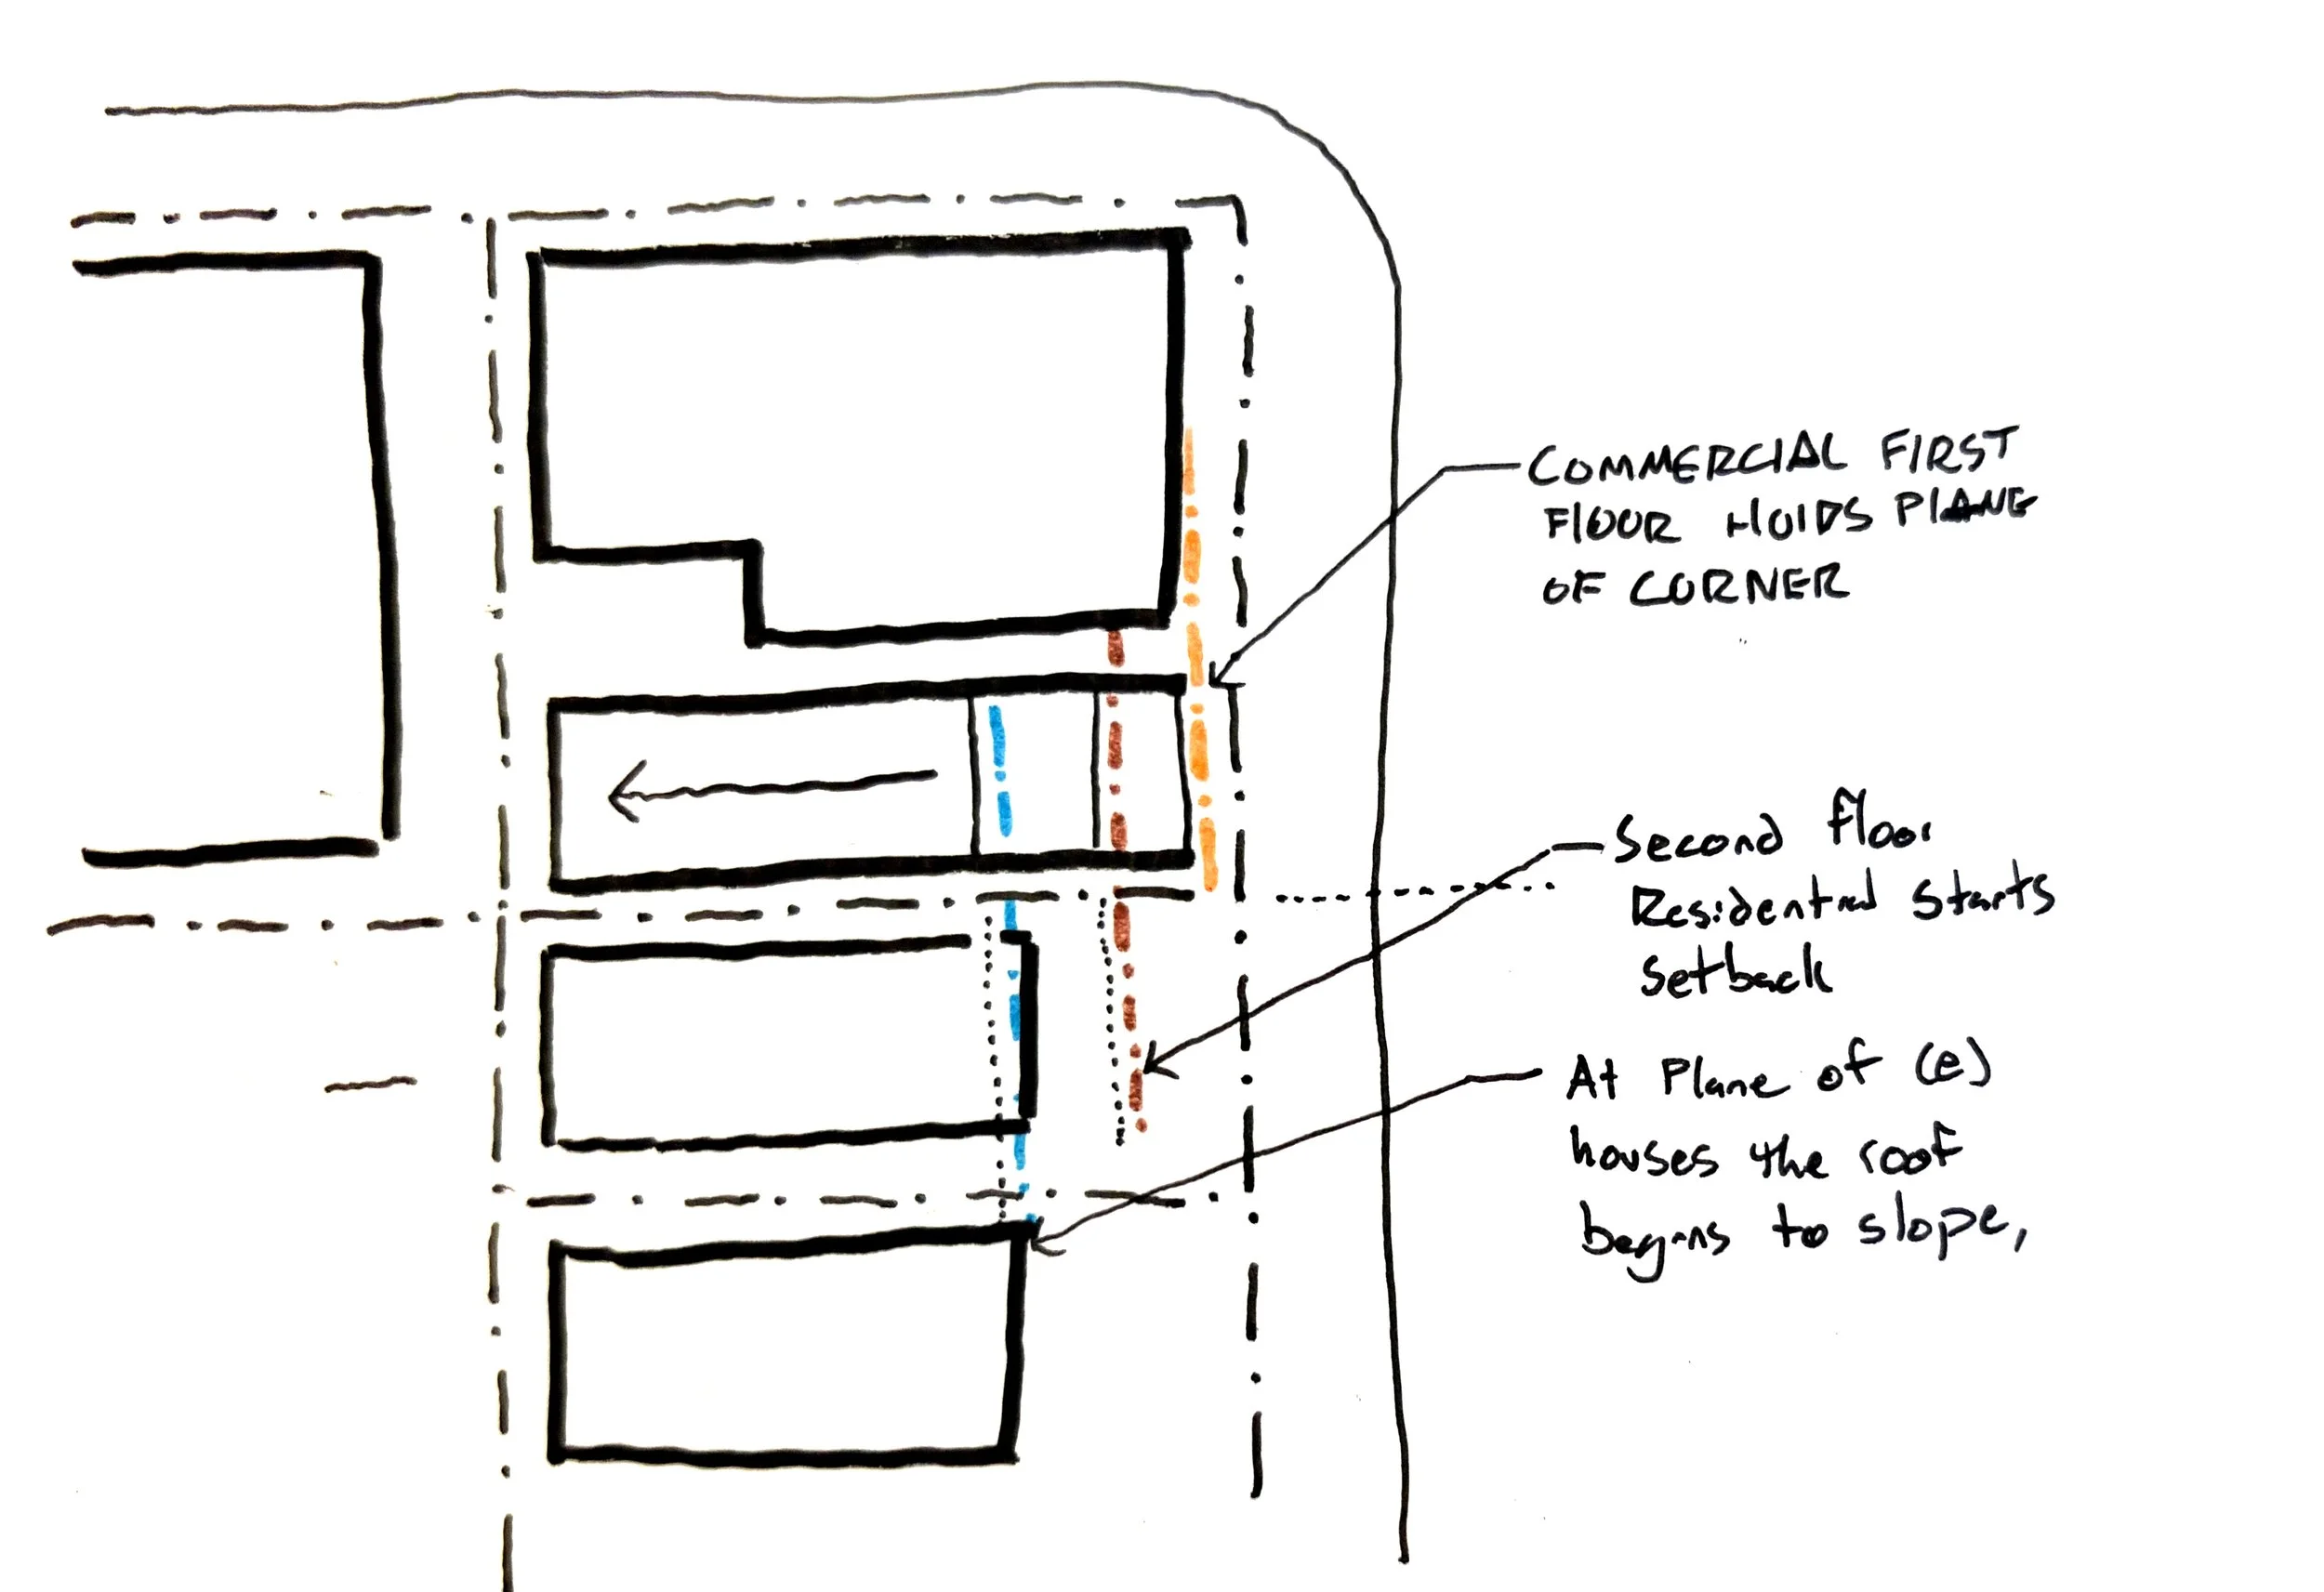 COMMERCIAL FIRST
FLOOR HOLDS PLANE
OF CORNER
Second floor
Residential Starts
setback
At Plane of (e)
houses the roof
begins to slope,